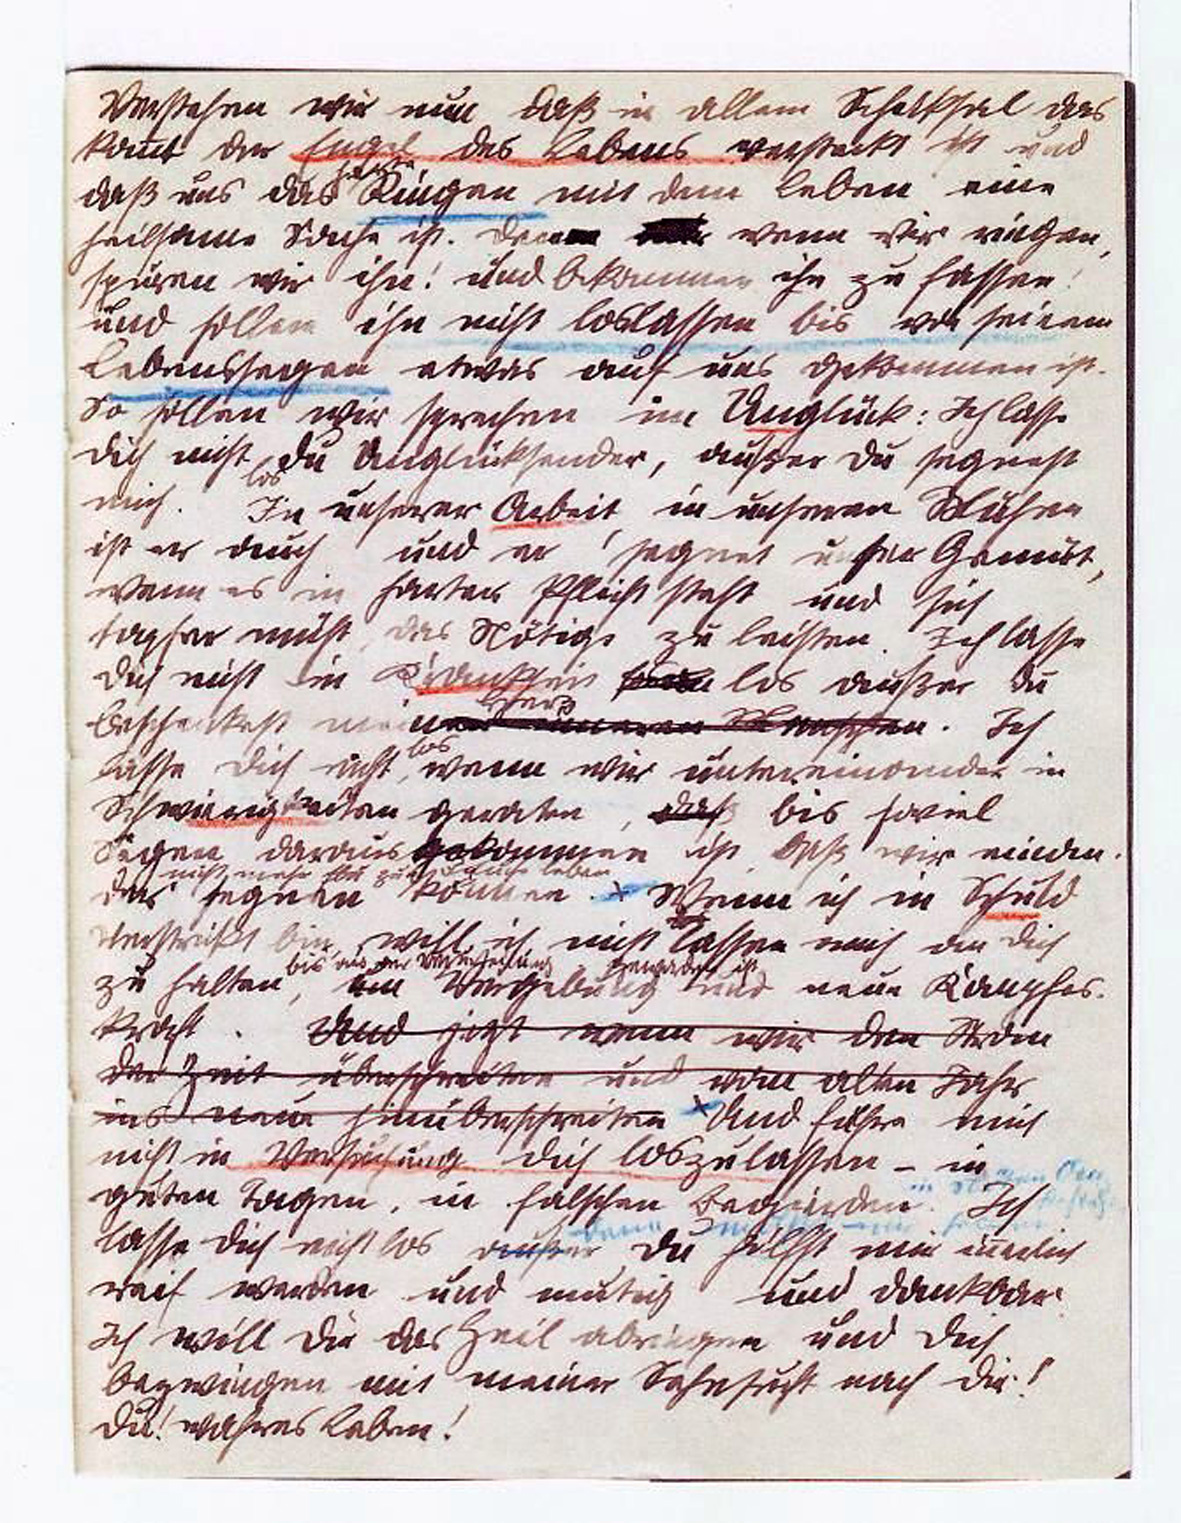 Verstehen wir nun daß in allem Schicksal das
kommt der Engel des Lebens versteckt ist und
daß uns das Ringen mit dem Leben eine
heilsame Sache ist. Denn wenn wir ringen,
spüren wir ihn! und bekommen ihn zu fassen!
und sollen ihn nicht loslassen bis von seinem
Lebenssegen etwas auf uns gekommen ist.
So sollen wir sprechen im Unglück: Ich lasse
Dich nicht los, Du Unglücksender, außer Du segnest
mich. In unserer Arbeit in unseren Mühen
ist er auch und er segnet unser Gemüt,
wenn es in harter Pflicht steht und sich
tapfer müht, das Nötige zu leisten. Ich lasse
Dich nicht in Krankheit los außer Du
beschenkest mein Herz. Ich
lasse Dich nicht los, wenn wir untereinander in
Schwierigkeiten geraten, bis soviel
Segen daraus gekommen ist daß wir einder.
nicht mehr
das segnen können. x Wenn ich in Schuld
verstrickt bin, will ich nicht lassen mich an Dich
bis aus der geworden ist
zu halten, Vergebung und neue Kampfes-
kraft. Und jetzt wenn wir den Strom
der Zeit überschreiten und vom alten Jahr
ins neue hinüberschreiten x Und führe mich
nicht in Versuchung Dich loszulassen – in
guten Tagen, in falschen Begierden. Ich
lasse Dich nicht los außer Du hilfst mir innerlich
reif werden und mutig und dankbar.
Ich will Dir das Heil abringen und Dich
bezwingen mit meiner Sehnsucht nach Dir!
Du! wahres Leben!